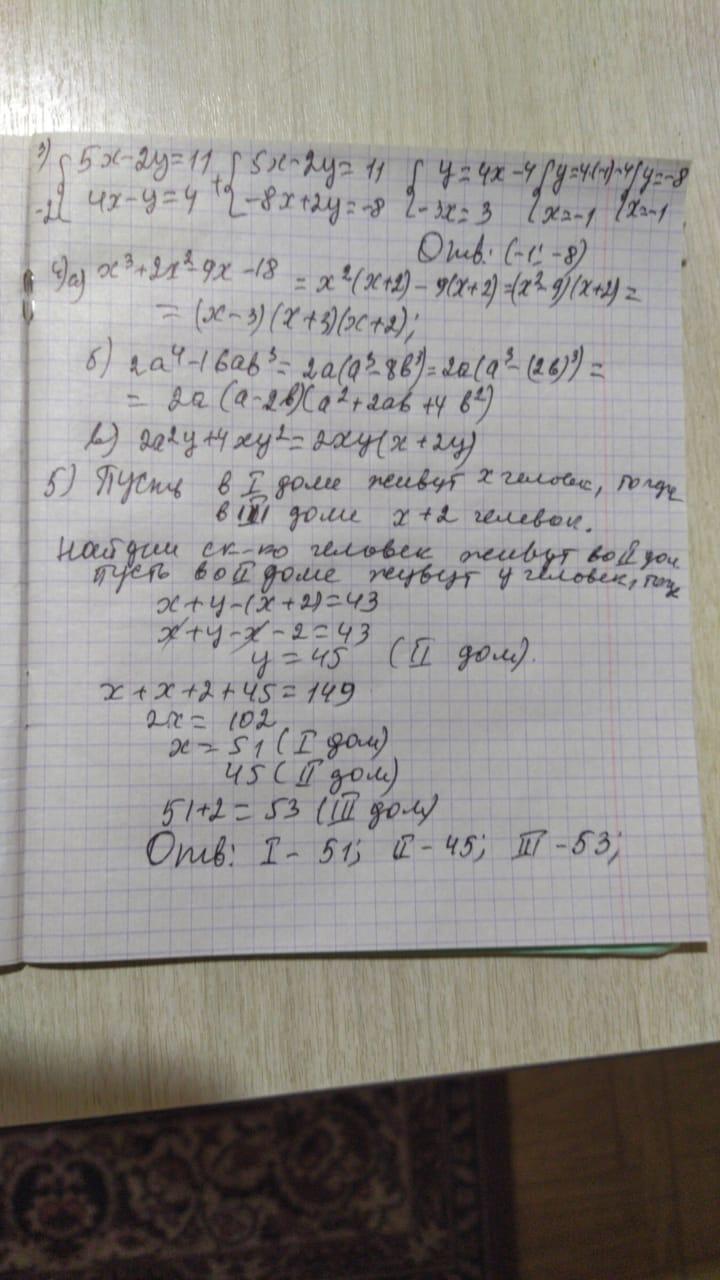 3) { 5x-2y=11 + { 5x-2y=11 { y=4x-4 { y=4(-1)-4 { y=-8
-2| 4x-y=4 { -8x+2y=-8 { -3x=3 { x=-1 { x=-1
Отв: (-1; -8)
4) а) x³+2x²-9x-18 = x²(x+2)-9(x+2)=(x²-9)(x+2)=
= (x-3)(x+3)(x+2);
б) 2a⁴-16ab³= 2a(a³-8b³)=2a(a³-(2b)³)=
= 2a(a-2b)(a²+2ab+4b²)
в) 2x²y+4xy²=2xy(x+2y)
5) Пусть в I доме живут x человек, тогда
в III доме x+2 человек.
Найдём ск-ко человек живут во II дом
пусть во II доме живут y человек, тогда
x+y-(x+2)=43
x+y-x-2=43
y=45 (II дом).
x+x+2+45=149
2x= 102
x=51 (I дом)
45 (II дом)
51+2=53 (III дом)
Отв: I-51; II-45; III-53;